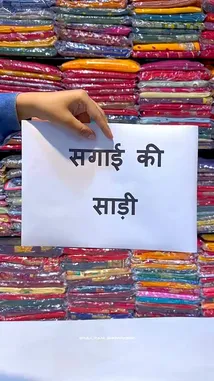 सगाई की
साड़ी